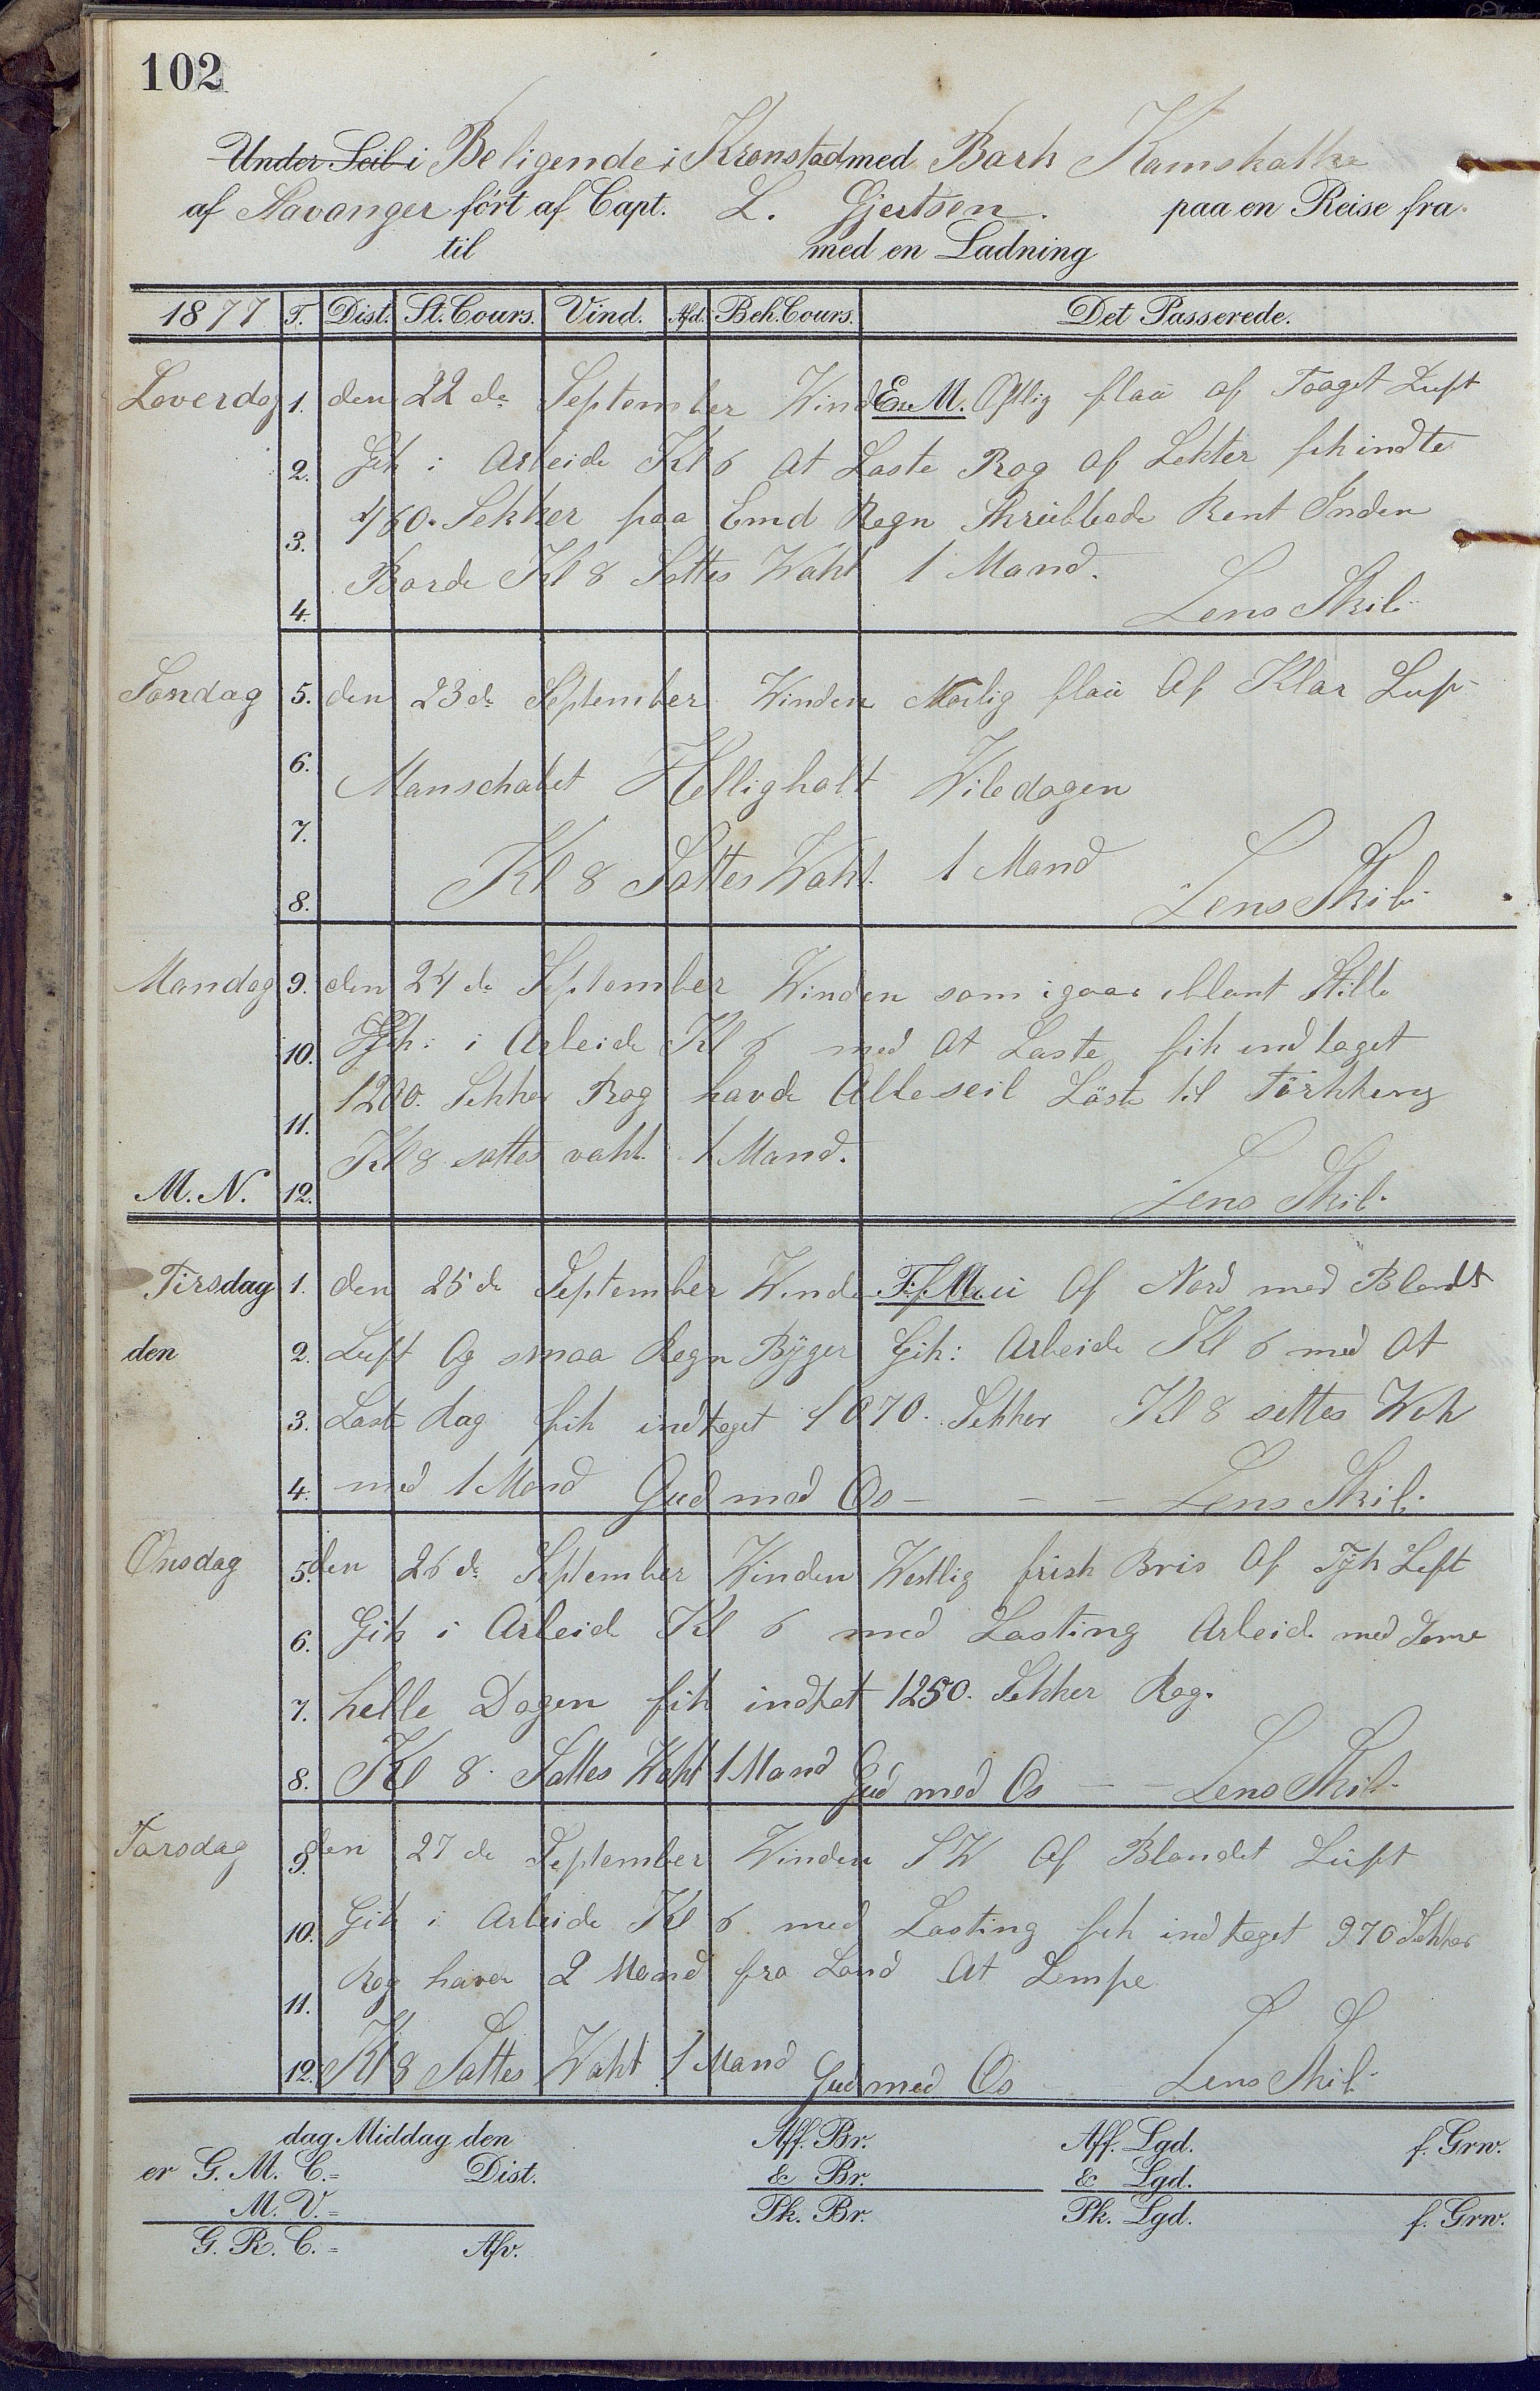 102
Under Seil i Beligende i Kronstad med Bark Kamskatka
af Stavanger ført af Capt. L. Gjertsen. paa en Reise fra
til med en Ladning
1877 T. Dist. St. Cours. Vind. Afd. Beh. Cours. Det Passerede.
Loverdag 1. den 22 de September Wind E. M. Østlig flau af Taaget Luft
2. Gik i Arbeide Kl 6 At Laste Rog af Lekter fik indte
3. 460. Sekker paa Emd Regn Skrubbede Rent Inden
Borde Kl 8 Sattes Wakt 1 Mand.
4. Lens Skib
Søndag 5. den 23 de September Winden Nordlig flau Af Klar Luf
6. Manschabet Helligholt Wiledagen
7.
Kl 8 Sattes Wakt. 1 Mand
8. Lens Skib
Mandag 9. den 24 de September Winden som igaar iblant Stille
10. Gik i Arbeide Kl 6 med At Laste fik indtaget
1200. Sekker Rog havde Alle seil Løste til Tørkkeng
11.
Kl 8 sattes vakt 1 Mand.
M. N. 12. Lens Skib
Tirsdag 1. den 25 de September Winde F. M. Af Nord med Blandt
den 2. Luft Og smaa Regn Byger Gik i Arbeide Kl 6 med At
3. Laste dag fik indtaget 1070. Sekker Kl 8 settes Wak
4. med 1 Mand Gud med Os — — — Lens Skib
Onsdag 5. den 26 de September Winden Westlig frisk Bris Af Tyk Luft
6. Gik i Arbeide Kl 6 med Lasting Arbeide med Samme
7. helle Dagen fik indtat 1250. Sekker Rog.
8. Kl 8 Sattes Wakt 1 Mand Gud med Os — — Lens Skib
Torsdag 9. den 27 de September Winden SW Af Blandet Luft
10. Gik i Arbeide Kl 6 med Lasting fik indtaget 970 Sekker
Rog haver 2 Mand fra Land At Lempe
11.
12. Kl 8 Sattes Wakt 1 Mand Gud med Os Lens Skib
dag Middag den Aff. Br. Aff. Lgd. f. Grw.
er G. M. C. = Dist. & Br. & Lgd.
M. V. = Pk. Br. Pk. Lgd. f. Grw.
G. R. C. = Afv.